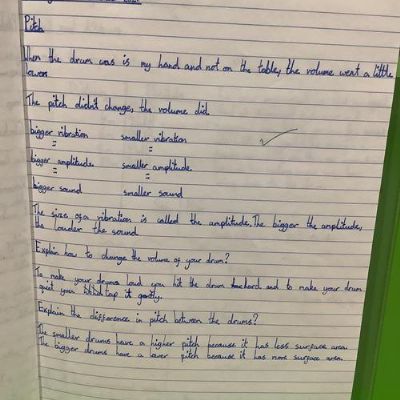 Pitch
When the drum was is my hand and not on the table, the volume went a little
lower
The pitch didn't change, the volume did.
bigger vibration smaller vibration
= =
bigger amplitude smaller amplitude
= =
bigger sound smaller sound
The size of a vibration is called the amplitude. The bigger the amplitude,
the louder the sound.
Explain how to change the volume of your drum?
To make your drums loud you hit the drum hard and to make your drum
quiet you tap it gently.
Explain the difference in pitch between the drums?
The smaller drums have a higher pitch because it has less surface area.
The bigger drums have a lower pitch because it has more surface area.